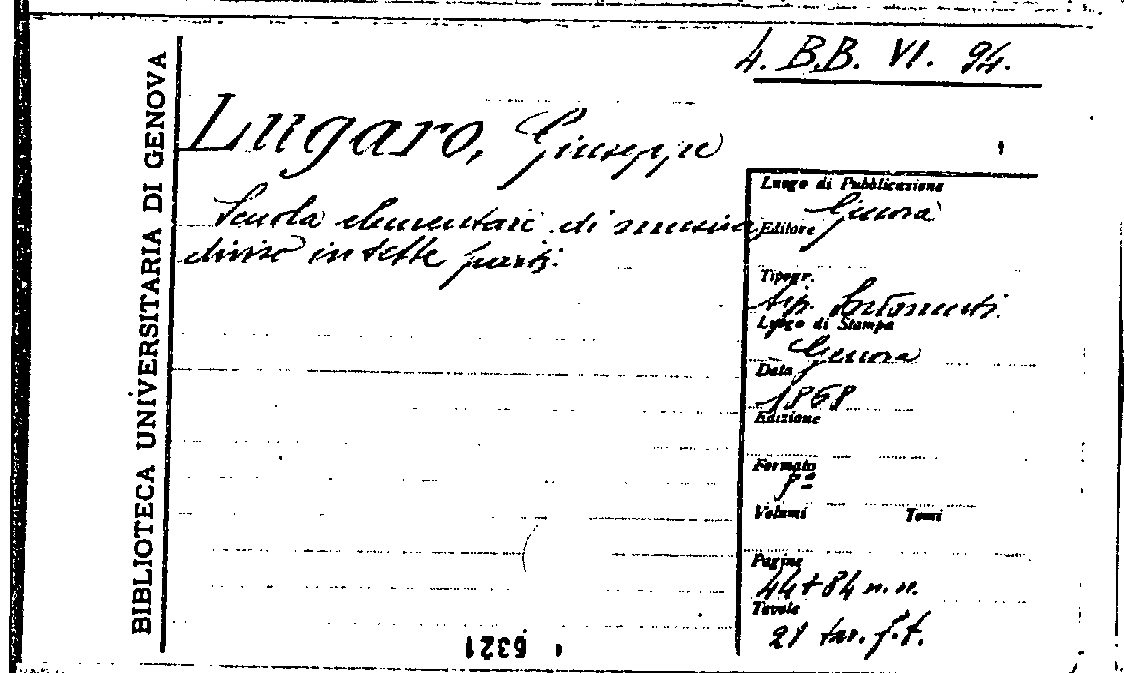 4. B.B. VI. 94.
BIBLIOTECA UNIVERSITARIA DI GENOVA
Lugaro, Giuseppe
Scuola elementare di musica
diviso in sette parti.
Luogo di Pubblicazione
Genova
Editore
Tipogr.
tip.
Luogo di Stampa
Genova
Data
1868
Edizione
Formato
8º
Volumi Tomi
Pagine
44+84 n.n.
Tavole
21 tav. f.t.
5321